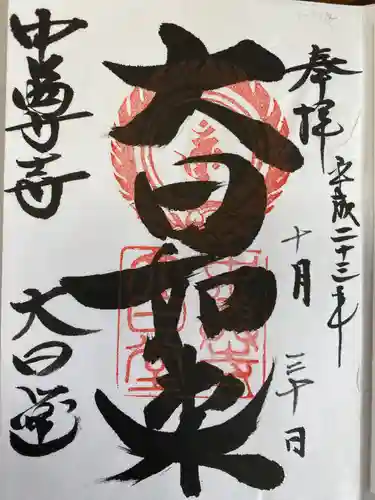 奉拝
平成二十三年
十月
三十日
大日如来
中尊寺
大日堂